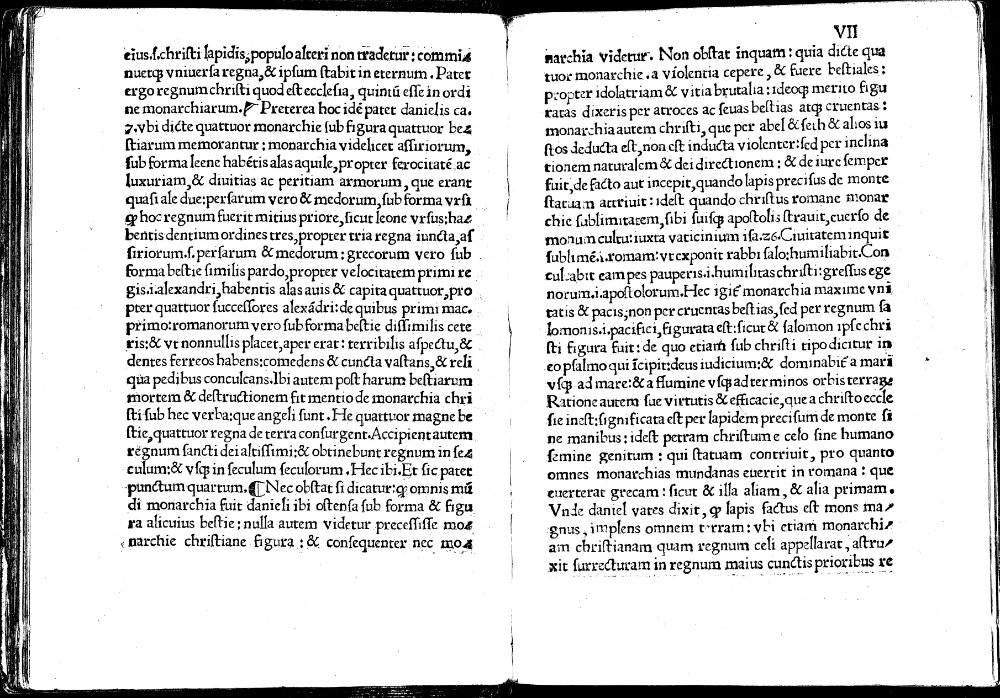 eius.ſ.chriſti lapidis,populo alteri non tradetur:commi⸗
nuetqꝫ vniuerſa regna,& ipſum ſtabit in eternum.Patet
ergo regnum chriſti quod eſt eccleſia, quintū eſſe in ordi
ne monarchiarum. Preterea hoc idē patet danielis ca.
7.vbi dicte quattuor monarchie ſub figura quattuor be⸗
ſtiarum memorantur: monarchia videlicet aſſiriorum,
ſub forma leene habētis alas aquile,propter ferocitatē ac
luxuriam,& diuitias ac peritiam armorum, que erant
quaſi ale due:perſarum vero & medorum,ſub forma vrſi
ꝙ hoc regnum fuerit mitius priore,ſicut leone vrſus:ha⸗
bentis dentium ordines tres,propter tria regna iuncta,aſ
ſiriorum.ſ.perſarum & medorum:grecorum vero ſub
forma beſtie ſimilis pardo,propter velocitatem primi re
gis.i.alexandri,habentis alas auis & capita quattuor,pro
pter quattuor ſucceſſores alexādri:de quibus primi mac.
primo:romanorum vero ſub forma beſtie diſſimilis cete
ris:& vt nonnullis placet,aper erat: terribilis aſpectu,&
dentes ferreos habens:comedens & cuncta vaſtans,& reli
qua pedibus conculcans.Ibi autem poſt harum beſtiarum
mortem & deſtructionem fit mentio de monarchia chri
ſti ſub hec verba:que angeli ſunt.He quattuor magne be
ſtie,quattuor regna de terra conſurgent.Accipient autem
regnum ſancti dei altiſſimi:& obtinebunt regnum in ſe⸗
culum:& vſqꝫ in ſeculum ſeculorum.Hec ibi.Et ſic patet
punctum quartum. Nec obſtat ſi dicatur:ꝙ omnis mū
di monarchia fuit danieli ibi oſtenſa ſub forma & figu
ra alicuius beſtie: nulla autem videtur preceſſiſſe mo⸗
narchie chriſtiane figura: & conſequenter nec mo⸗
VII
narchia videtur. Non obſtat inquam: quia dicte qua
tuor monarchie.a violentia cepere, & fuere beſtiales:
propter idolatriam & vitia brutalia: ideoqꝫ merito figu
ratas dixeris per atroces ac ſeuas beſtias atqꝫ cruentas:
monarchia autem chriſti, que per abel & ſeth & alios iu
ſtos deducta eſt,non eſt inducta violenter:ſed per inclina
tionem naturalem & dei directionem: & de iure ſemper
fuit,de facto aut incepit,quando lapis preciſus de monte
ſtatuam attriuit: ideſt quando chriſtus romane monar
chie ſublimitatem,ſibi ſuiſqꝫ apoſtolis ſtrauit,euerſo de
monum cultu:iuxta vaticinium iſa.26.Ciuitatem inquit
ſublimē.i.romam:vt exponit rabbi ſalo;humiliabit.Con
culcabit eam pes pauperis.i.humilitas chriſti:greſſus ege
norum.i.apoſtolorum.Hec igit̄ monarchia maxime vni
tatis & pacis,non per cruentas beſtias,ſed per regnum ſa
lomonis.i.pacifici,figurata eſt:ſicut & ſalomon ipſe chri
ſti figura fuit: de quo etiam ſub chriſti tipo dicitur in
eo pſalmo qui īcipit:deus iudicium:& dominabit̄ a mari
vſqꝫ ad mare:& a flumine vſqꝫ ad terminos orbis terraꝝ
Ratione autem ſue virtutis & efficacie,que a chriſto eccle
ſie ineſt:ſignificata eſt per lapidem preciſum de monte ſi
ne manibus: ideſt petram chriſtum e celo ſine humano
ſemine genitum: qui ſtatuam contriuit, pro quanto
omnes monarchias mundanas euertit in romana: que
euerterat grecam: ſicut & illa aliam, & alia primam.
Vnde daniel vates dixit, ꝙ lapis factus eſt mons ma⸗
gnus, implens omnem terram: vbi etiam monarchi⸗
am chriſtianam quam regnum celi appellarat, aſtru⸗
xit ſurrecturam in regnum maius cunctis prioribus re